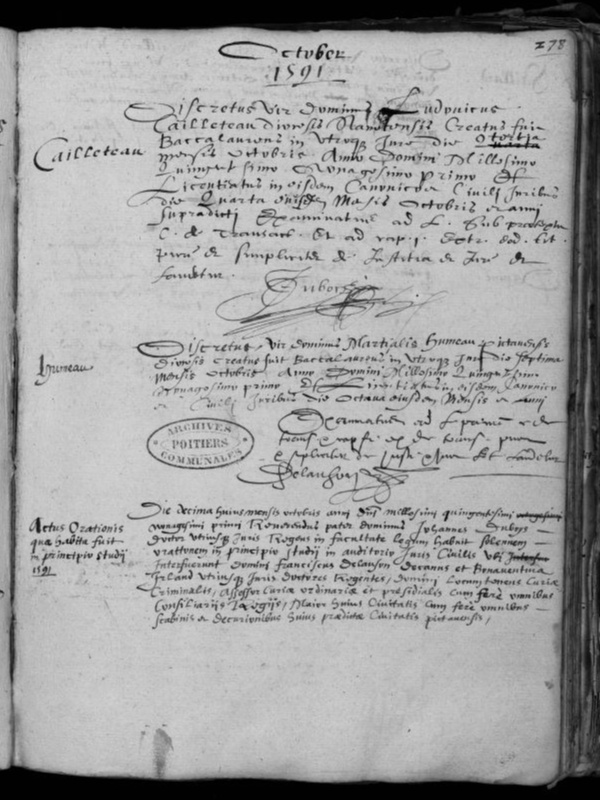 October
1591
278
Cailleteau
Discretus vir dominus Ludovicus
Cailleteau diocesis Nanetensis Creatus fuit
Baccalaureus in utroque Jure die tertia
quarta
mensis Octobris Anno Domini Millesimo
Quingentesimo Nonagesimo primo Et
Licentiatus in eisdem Canonico et Civili Juribus
die Quarta eiusdem Mensis Octobris et anni
supradicti Examinatus ad L. sub praetextu
C. de Transact. Et ad cap. 1. Extr. eod. tit.
pure et simpliciter de Justitia et Jure et
laudetur.
Dubois
Huneau
Discretus vir dominus Martialis Huneau pictavensis
diocesis Creatus fuit Baccalaureus in utroque Jure die septima
mensis Octobris Anno Domini Millesimo Quingentesimo
Nonagesimo primo Et Licentiatus in eisdem Canonico
et Civili Juribus die Octava eiusdem Mensis et anni
Examinatus ad L
pure
et simpliciter de Just et Jure Et laudetur
Delauson
ARCHIVES
POITIERS
COMMUNALES
Actus Orationis
quæ habita fuit
in principio studii
1591
Die decima huius mensis octobris anni dni millesimi quingentesimi
nonagesimi primi Reverendus pater dominus Johannes Duboys
doctor utriusque Juris Regens in facultate legum habuit solennem
orattonem in principio studii in auditorio Juris Civilis Ubi
Interfuerunt Domini franciscus Delauson Decanus et Bonaventura
Irland utriusque Juris doctores Regentes, domini Locumtenens Curiæ
Criminalis, Assessor Curiæ ordinariæ et præsidialis cum ferè omnibus
Consiliariis Regiis, Maior huius Civitatis cum ferè omnibus
scabinis et decurionibus huius prædictæ Civitatis pictavensis,